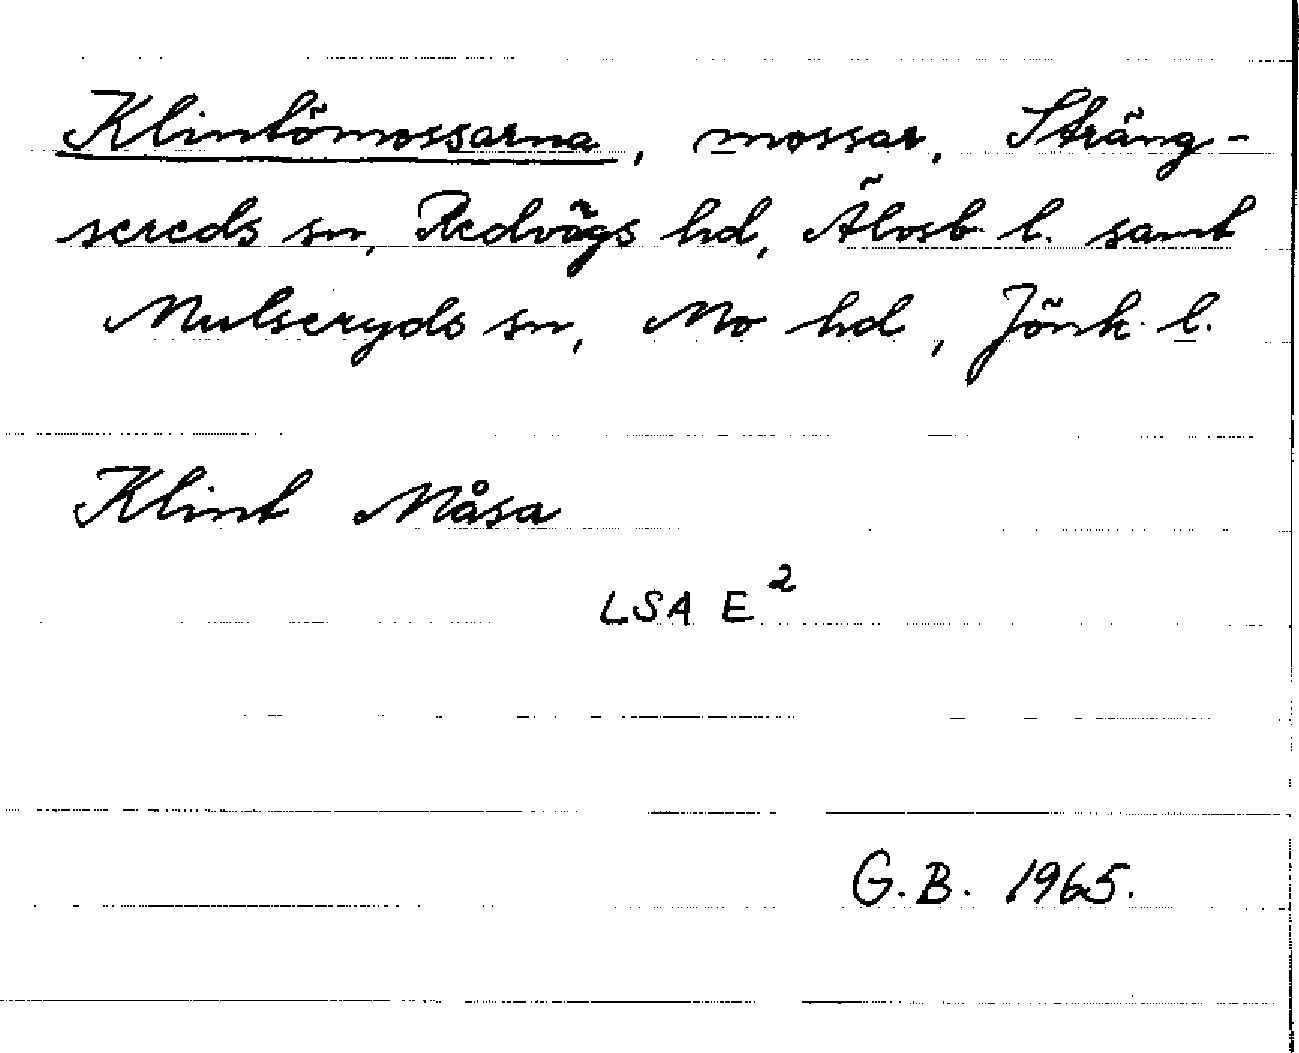 Klintömossarna, mossar, Sträng-
sereds sn, Redvägs hd, Älvsb. l. samt
Mulseryds sn, Mo hd, Jönk. l.
Klint Måsa
LSA E²
G.B. 1965.